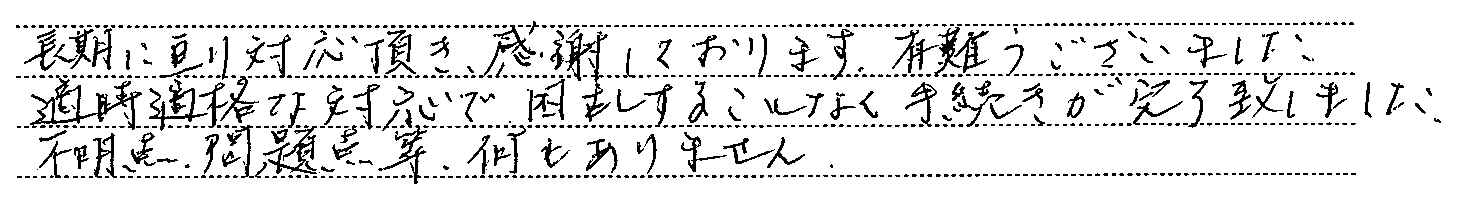 長期に亘り対応頂き、感謝しております。有難うございました。
適時適格な対応で困乱することなく手続きが完了致しました。
不明点、問題点等、何もありません。